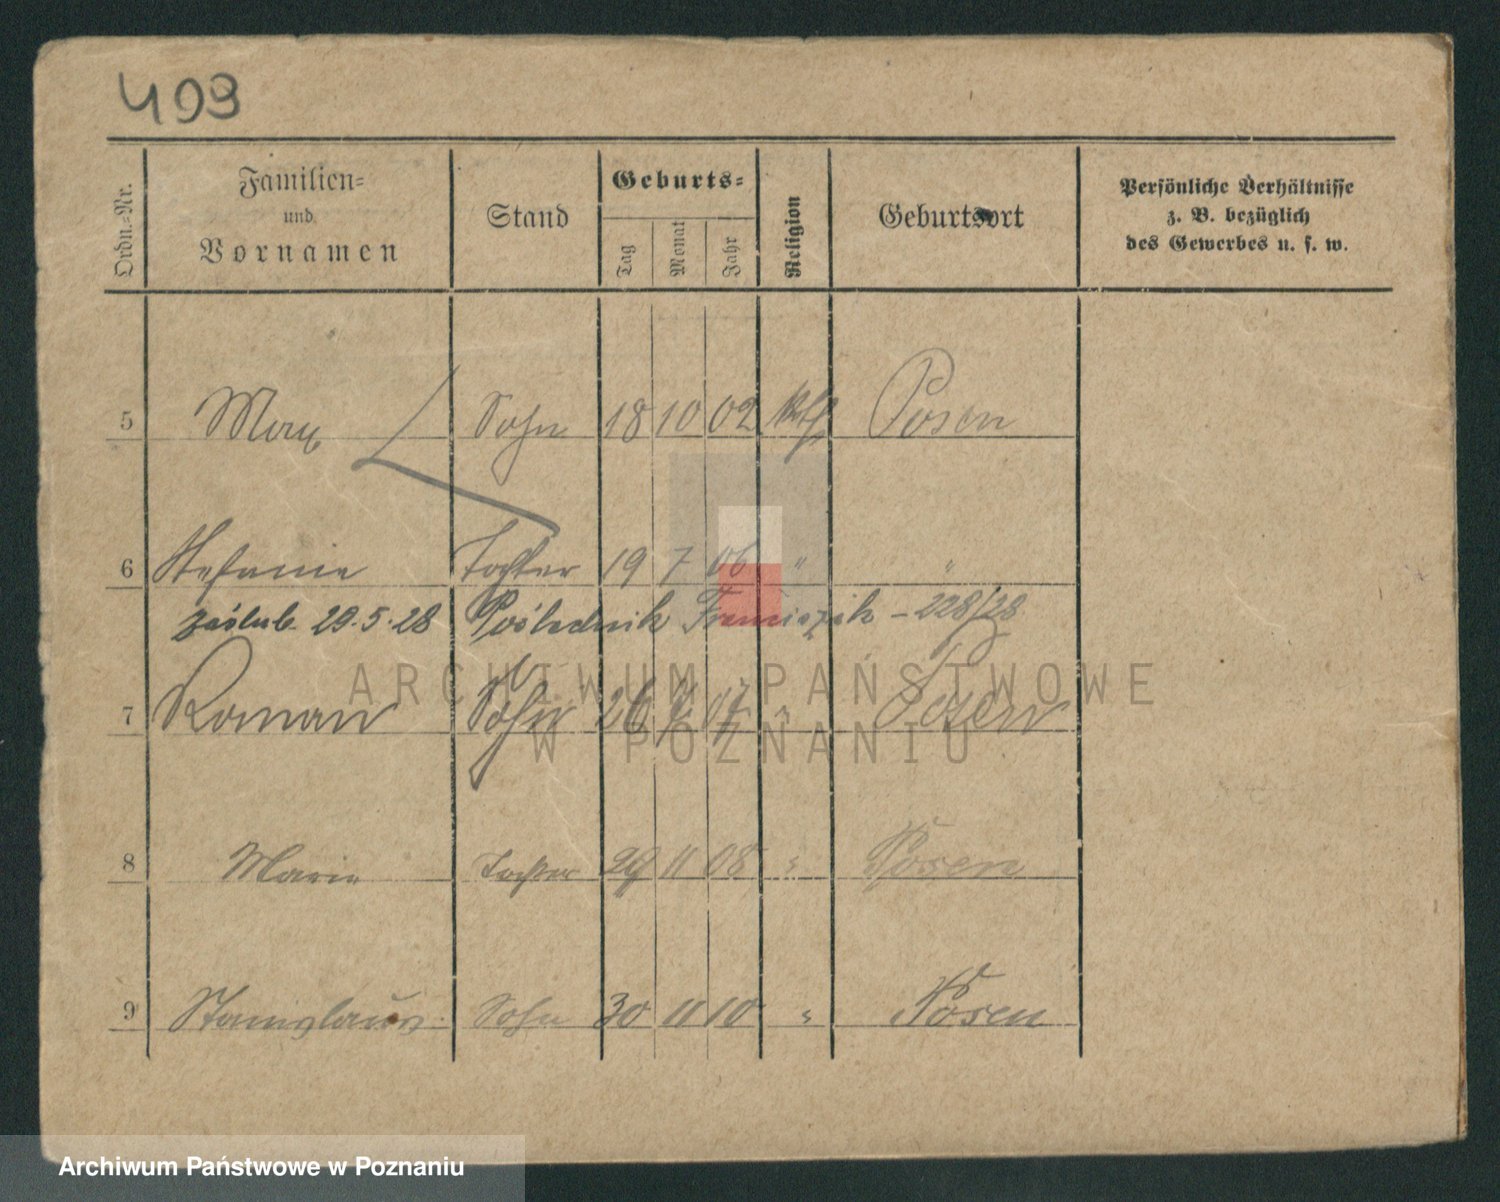 409
Ordn.-Nr.
Familien-
und
Vornamen
Stand
Geburts-
Tag
Monat
Jahr
Religion
Geburtsort
Persönliche Verhältnisse
z. B. bezüglich
des Gewerbes u. s. w.
5 Max Sohn 18 10 02 kath Posen
6 Stefanie Tochter 19 7 06 " "
zaślub. 29.5.28 Poślednik Franciszek – 228/28
7 Roman Sohn 26 7 07 "
8 Marie Tochter 29 11 08 " Posen
9 Stanislaus Sohn 30 11 10 " Posen
ARCHIWUM PAŃSTWOWE
W POZNANIU
Archiwum Państwowe w Poznaniu